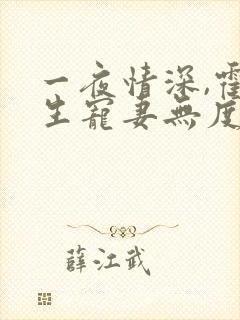 一夜情深,霍
生寵妻無度
薛江武